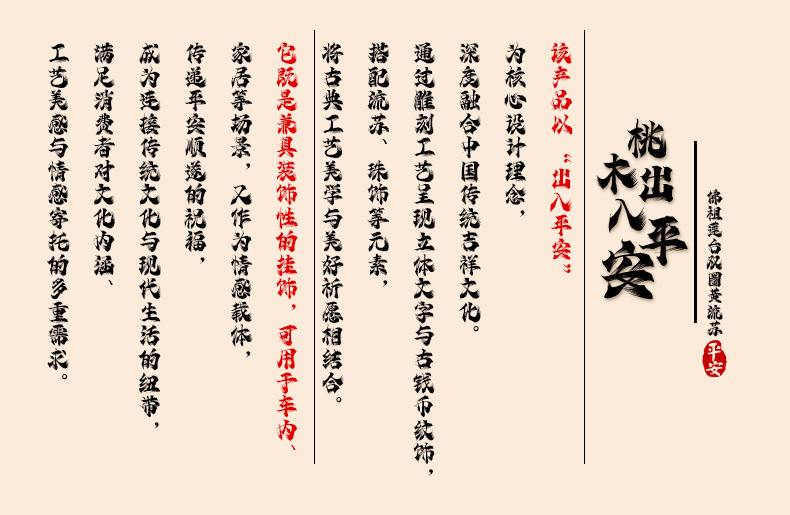 佛祖莲台双圈黄流苏
平安
桃木
出入
平安
该产品以“出入平安”
为核心设计理念，
深度融合中国传统吉祥文化。
通过雕刻工艺呈现立体文字与古钱币纹饰，
搭配流苏、珠饰等元素，
将古典工艺美学与美好祈愿相结合。
它既是兼具装饰性的挂饰，可用于车内、
家居等场景，又作为情感载体，
传递平安顺遂的祝福，
成为连接传统文化与现代生活的纽带，
满足消费者对文化内涵、
工艺美感与情感寄托的多重需求。